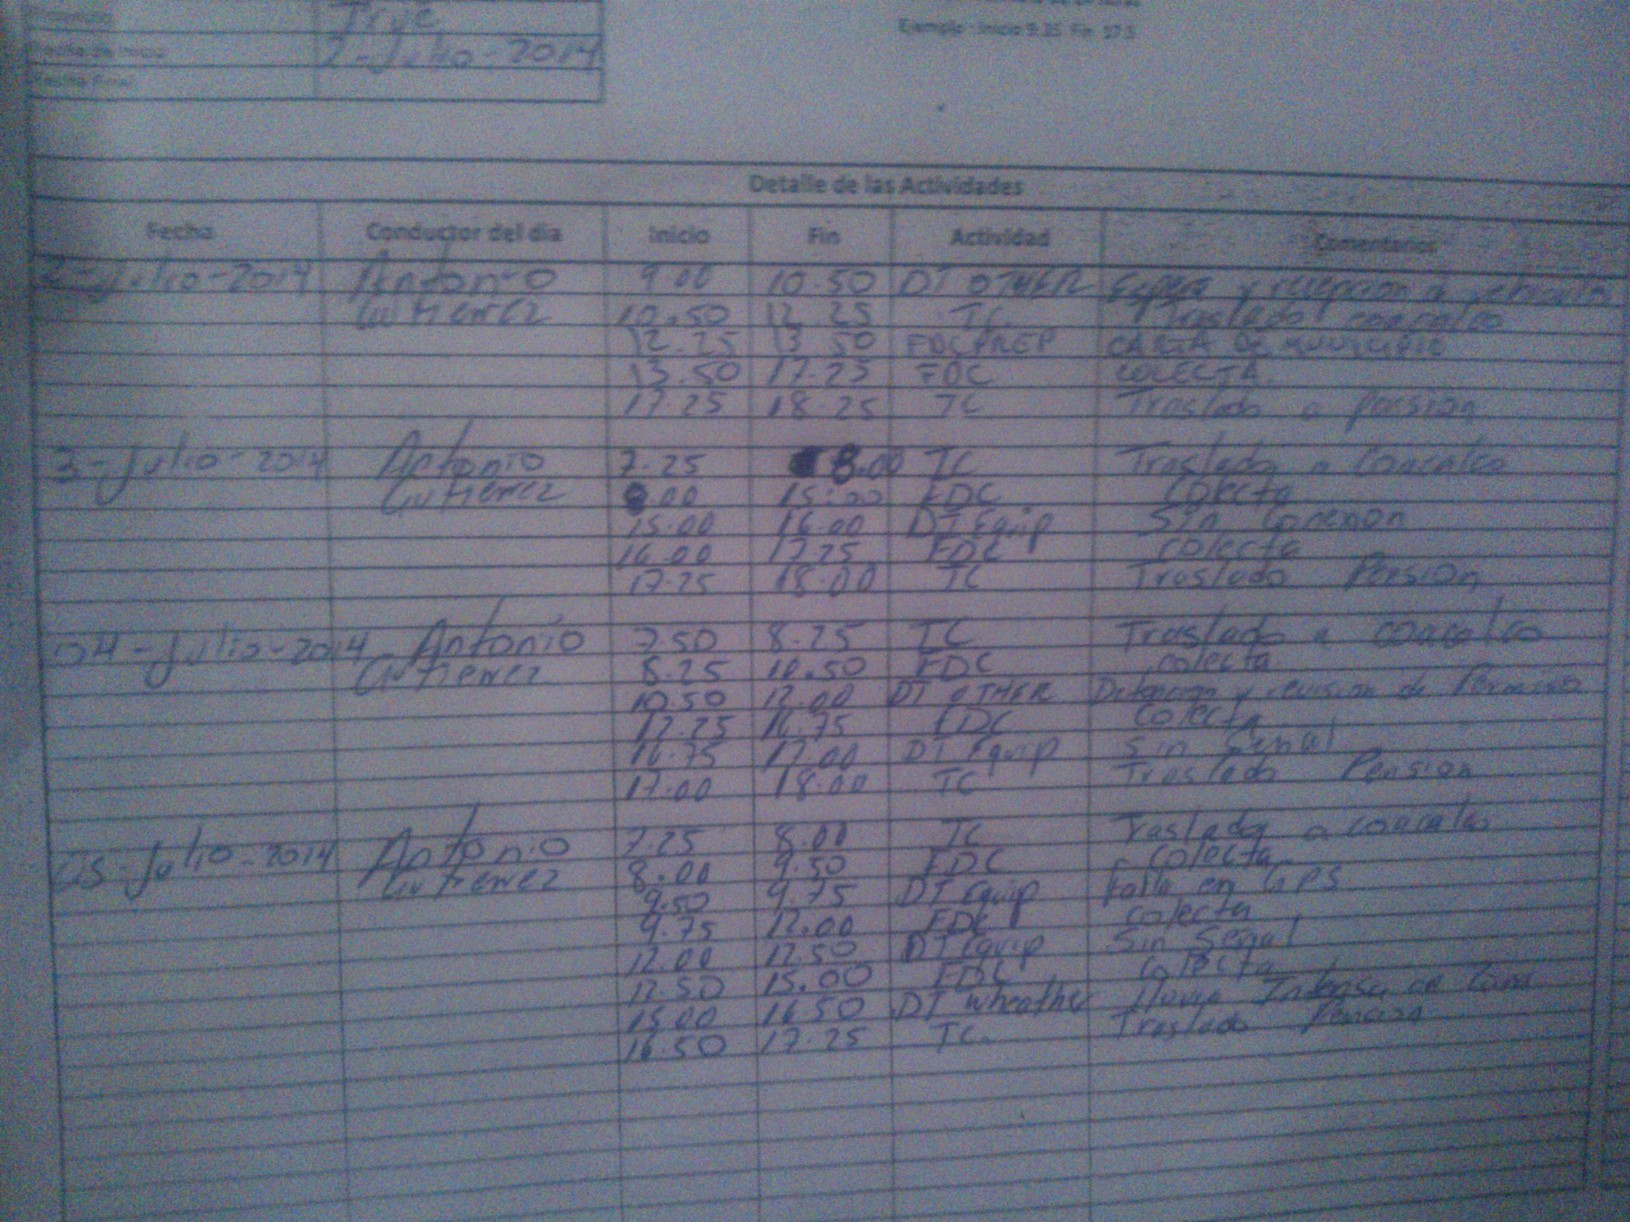 True
Fecha de Inicio 2-Julio-2014
Fecha Final
Ejemplo: Inicio 9.25 Fin 17.5
Detalle de las Actividades
Fecha Conductor del dia Inicio Fin Actividad Comentarios
2-Julio-2014 Antonio 9.00 10.50 DT OTHER Espera y recepcion
Gutierrez 10.50 12.25 TC Traslado coacalco
12.25 13.50 FDC PREP CARTA DE MUNICIPIO
13.50 17.25 FDC COLECTA
17.25 18.25 TC Traslado a pension
3-Julio-2014 Antonio 7.25 8.00 TC Traslado a Coacalco
Gutierrez 8.00 15:00 FDC Colecta
15.00 16.00 DT Equip Sin Conexion
16.00 17.25 FDC colecta
17.25 18.00 TC Traslado Pension
04-Julio-2014 Antonio 7.50 8.25 TC Traslado a coacalco
Gutierrez 8.25 10.50 FDC colecta
10.50 12.00 DT OTHER Detencion y revision de Permiso
12.25 16.75 FDC Colecta
16.75 17.00 DT Equip Sin Señal
17.00 18.00 TC Traslado Pension
05-Julio-2014 Antonio 7.25 8.00 TC Traslado a coacalco
Gutierrez 8.00 9.50 FDC colecta
9.50 9.75 DT Equip Falla en GPS
9.75 12.00 FDC colecta
12.00 12.50 DT Equip Sin Señal
12.50 15.00 FDC Colecta
15.00 16.50 DT wheather lluvia Intensa en
16.50 17.25 TC. Traslado Pension